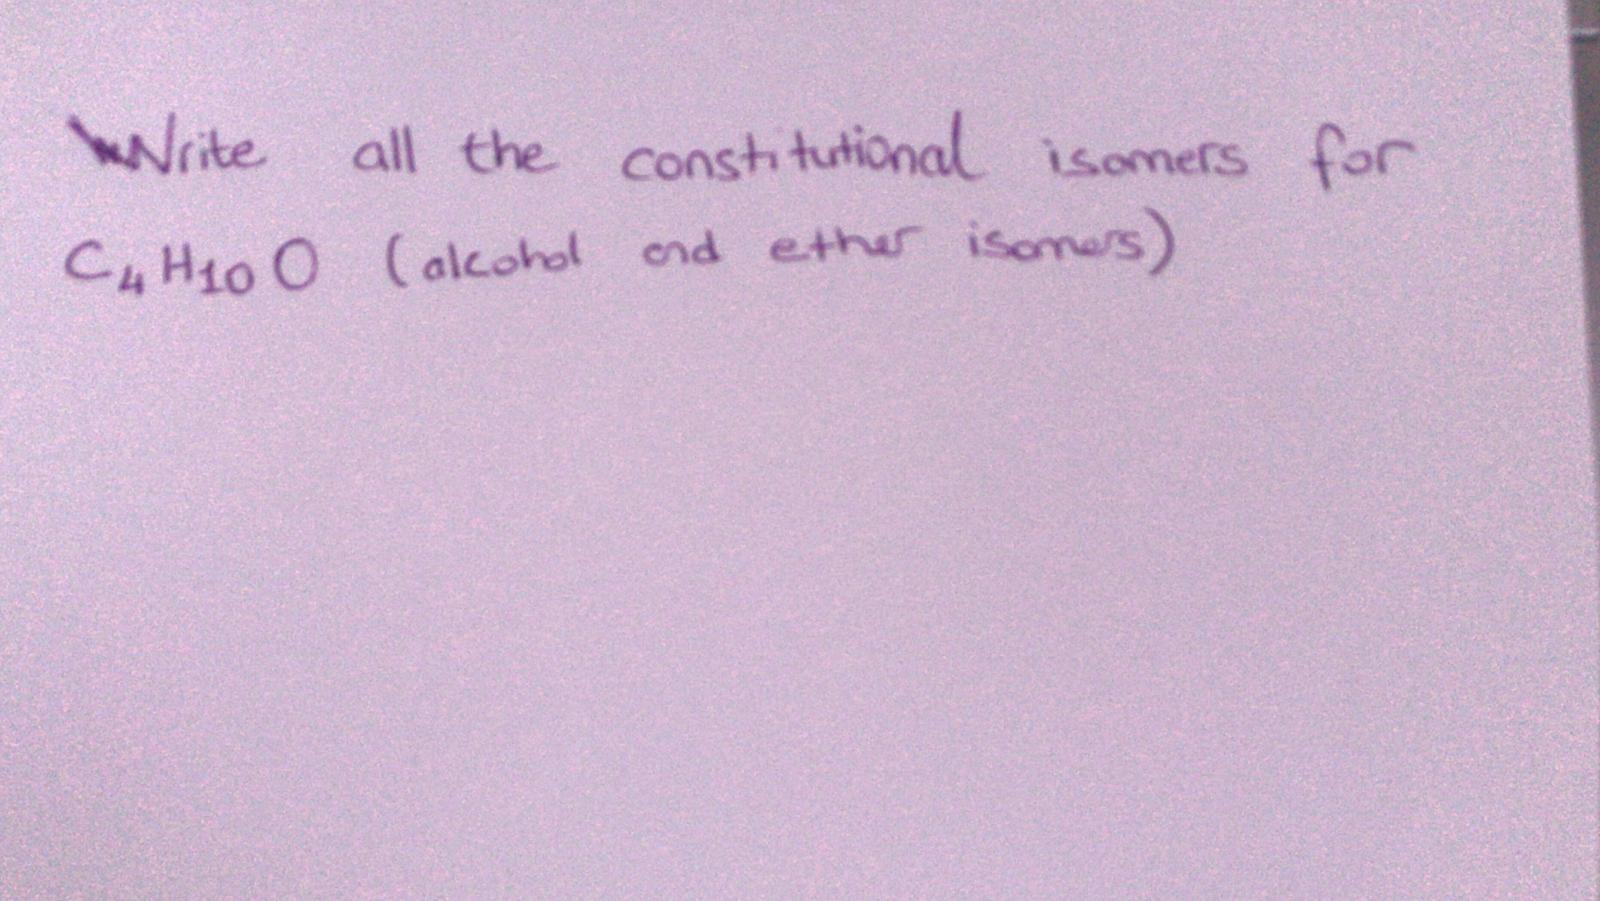 Write all the constitutional isomers for
C₄H₁₀O (alcohol and ether isomers)